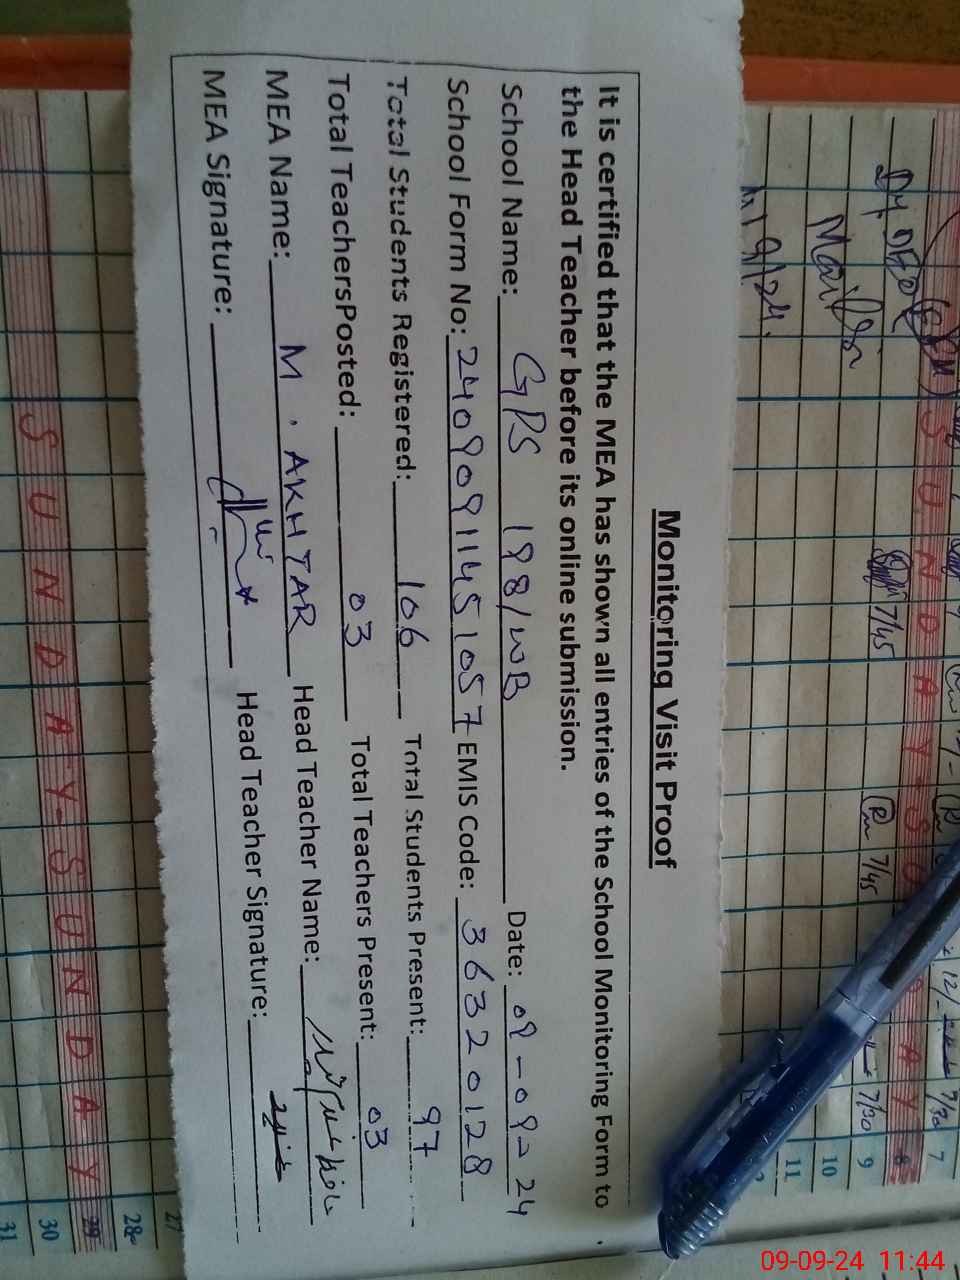 Monitoring Visit Proof
It is certified that the MEA has shown all entries of the School Monitoring Form to
the Head Teacher before its online submission.
School Name: GPS 198/WB Date: 09-09-24
School Form No: 24090911451057 EMIS Code: 36320128
Total Students Registered: 106 Total Students Present: 97
Total TeachersPosted: 03 Total Teachers Present: 03
MEA Name: M. AKHTAR Head Teacher Name:
MEA Signature: Head Teacher Signature:
Mailsi
9/24.
SUNDAY-SUNDAY
7/45
7/45
7/30
7/30
7
8
9
10
11
SUNDAY-SUNDAY
27
28
29
30
31
09-09-24 11:44